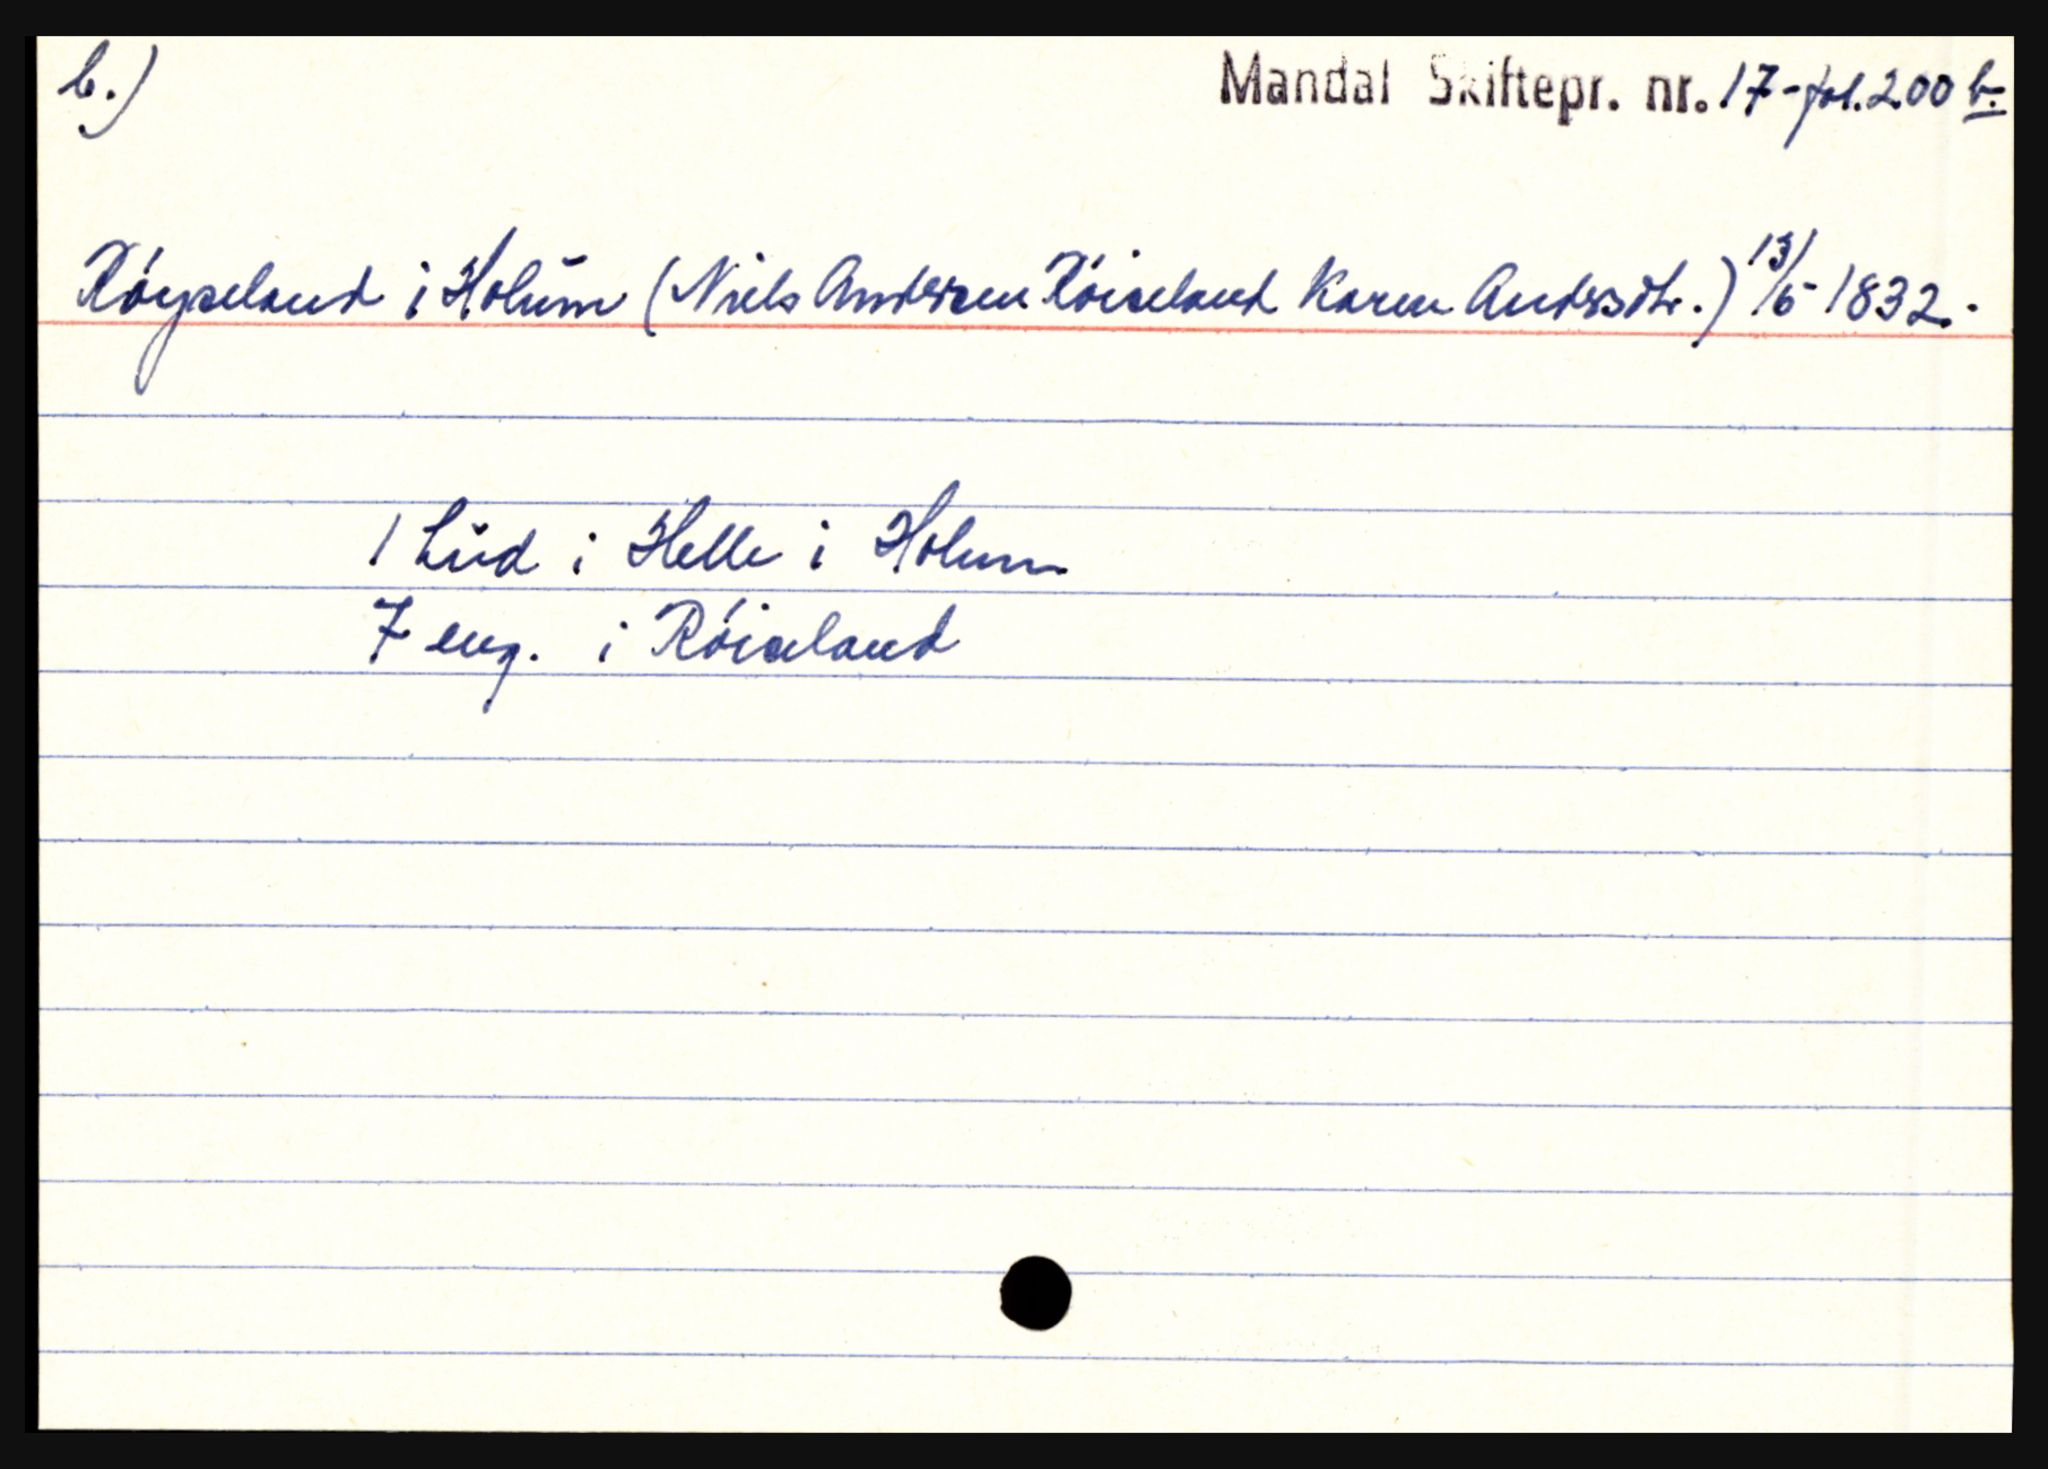 b.)
Mandal Skiftepr. nr. 17 - fol. 200 b.
Røyseland i Holum (Niels Andersen Røiseland Karen Andersdtr.) 13/5 - 1832.-
1 hud i Helle i Holum
7 eng. i Røiseland